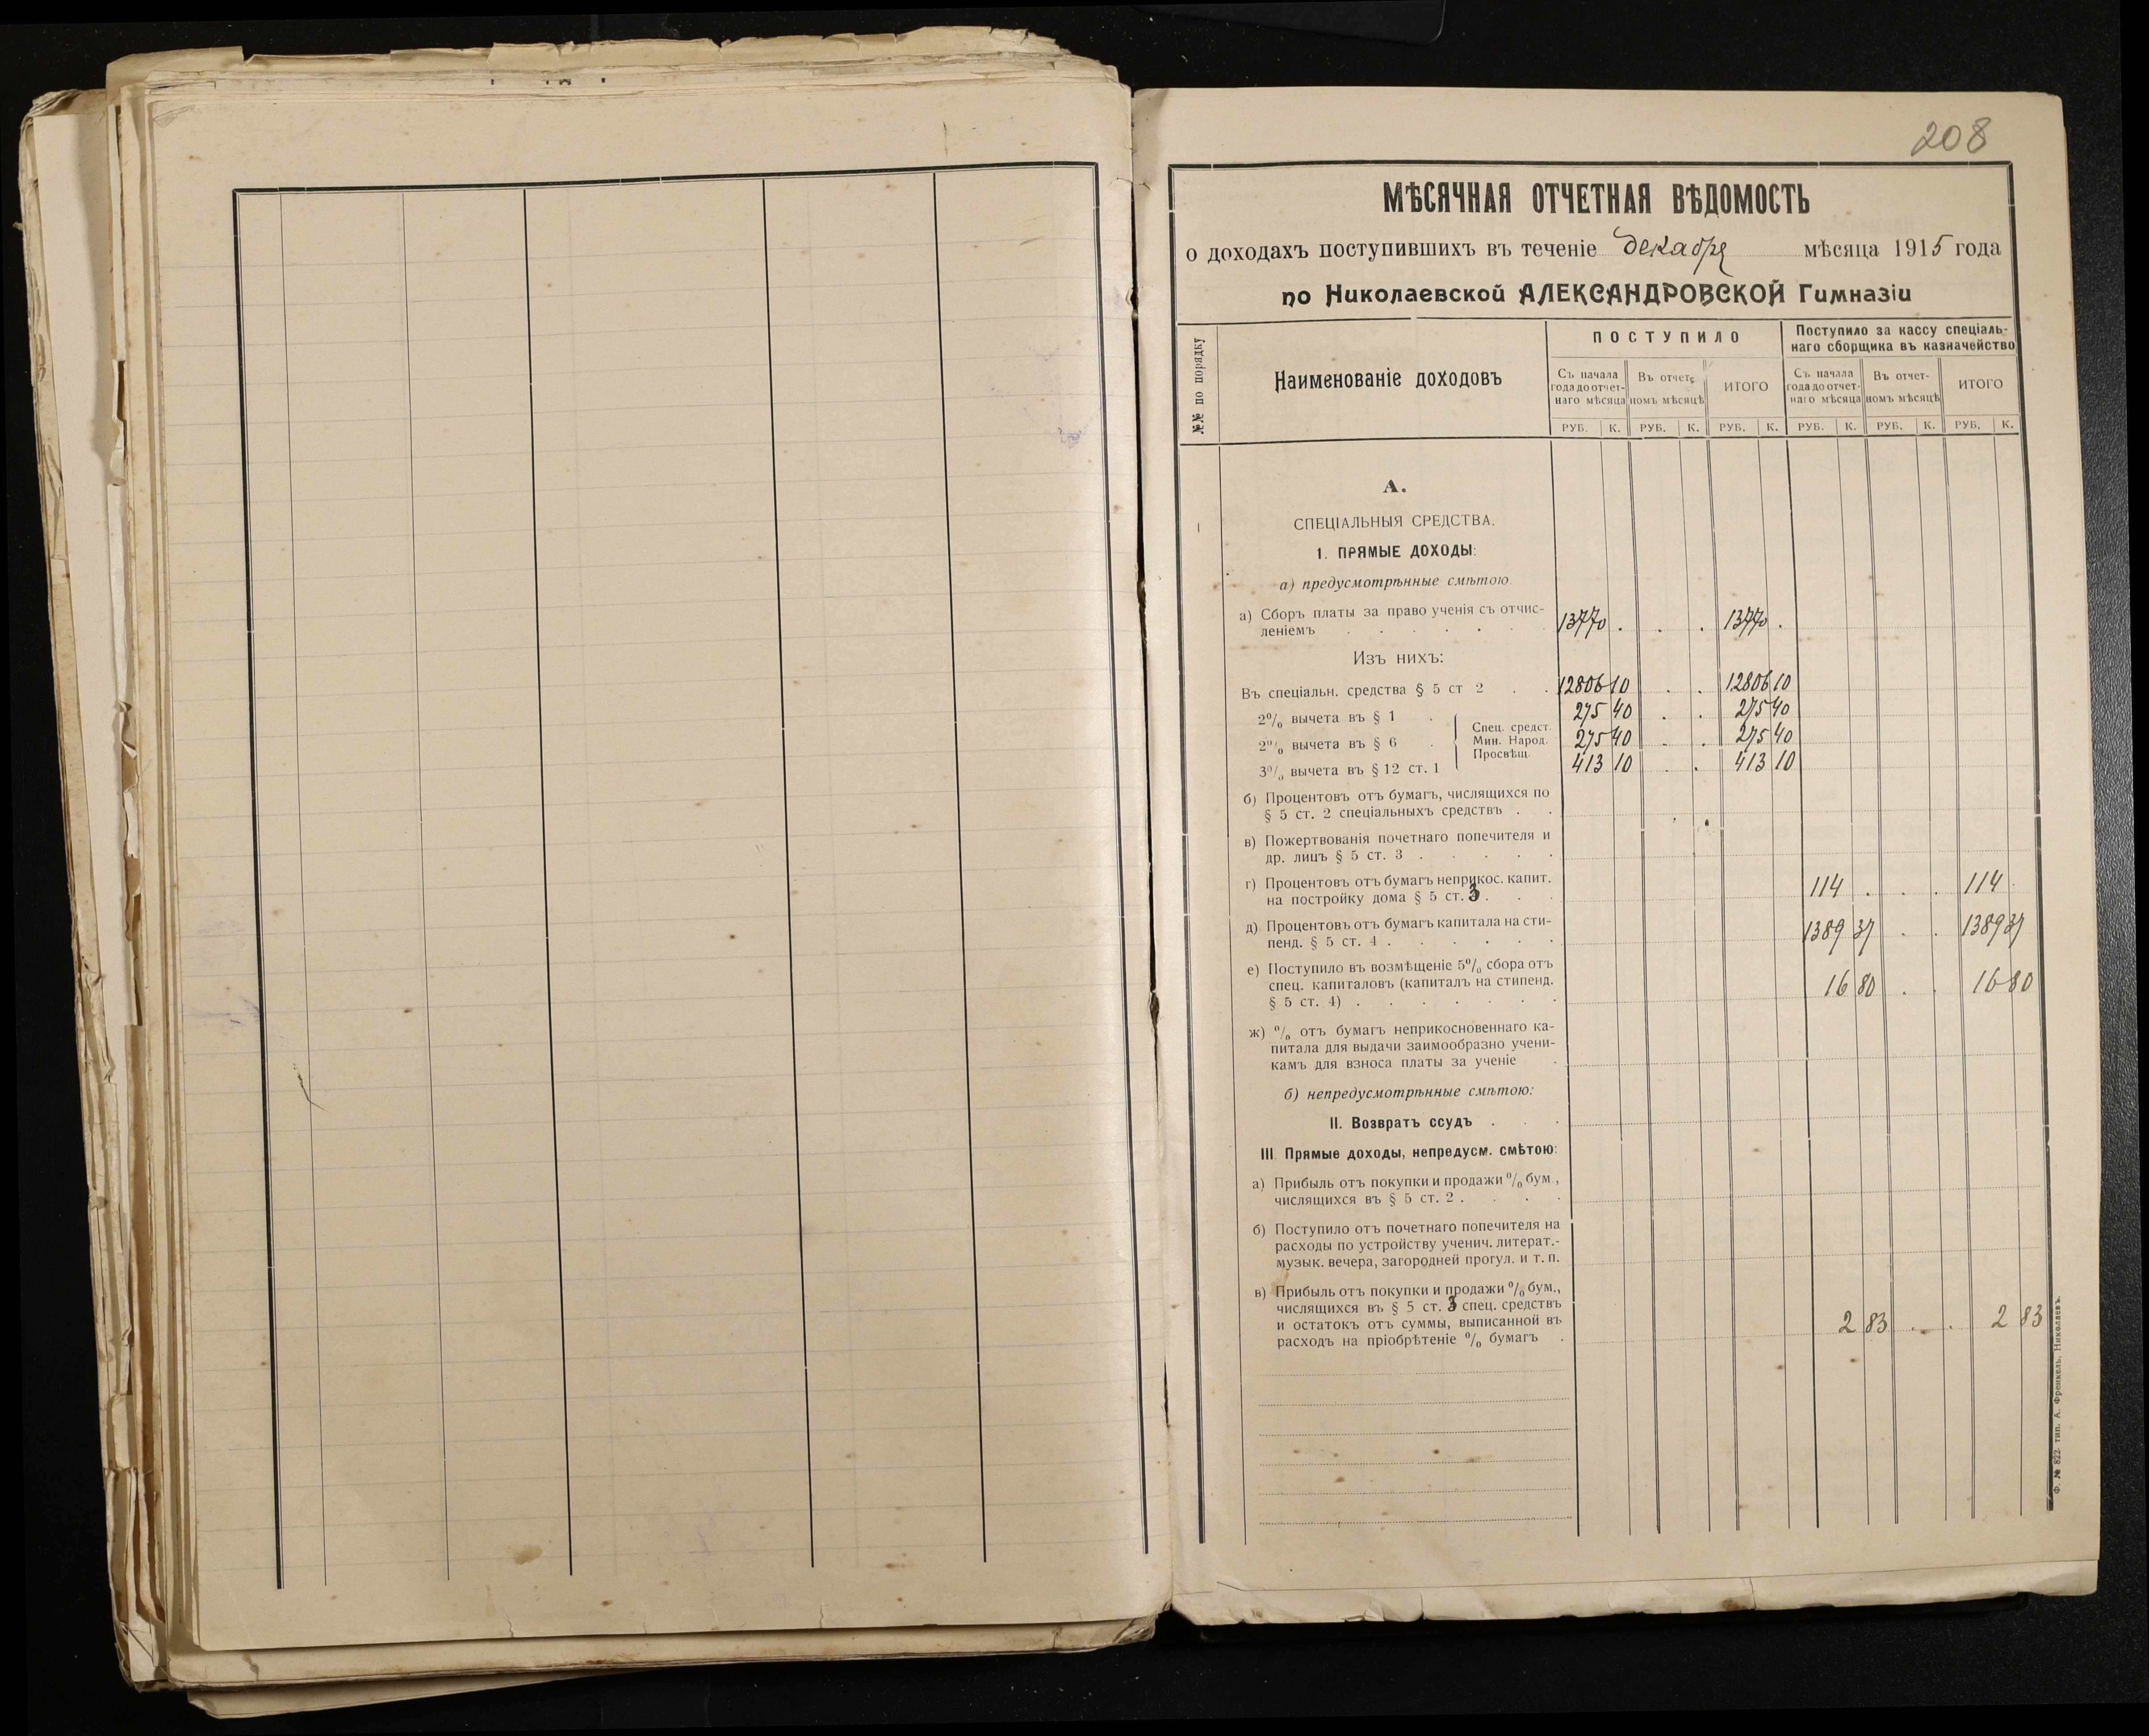 208
МѢСЯЧНАЯ ОТЧЕТНАЯ ВѢДОМОСТЬ
о доходахъ поступившихъ въ теченіе декабря мѣсяца 1915 года
по Николаевской АЛЕКСАНДРОВСКОЙ Гимназіи
№№ по порядку
Наименованіе доходовъ
ПОСТУПИЛО
Поступило за кассу спеціаль-
наго сборщика въ казначейство
Съ начала
года до отчет-
наго мѣсяца
Въ отчет-
номъ мѣсяцѣ
ИТОГО
Съ начала
года до отчет-
наго мѣсяца
Въ отчет-
номъ мѣсяцѣ
ИТОГО
РУБ. К. РУБ. К. РУБ. К. РУБ. К. РУБ. К. РУБ. К.
А.
СПЕЦІАЛЬНЫЯ СРЕДСТВА.
1. ПРЯМЫЕ ДОХОДЫ:
а) предусмотрѣнные смѣтою
а) Сборъ платы за право ученія съ отчис-
леніемъ . . . . . . 13770 . . . 13770 .
Изъ нихъ:
Въ спеціальн. средства § 5 ст 2 . . 12806 10 . . 12806 10
2% вычета въ § 1 . 275 40 . . 275 40
Спец. средст.
2% вычета въ § 6 . Мин. Народ. 275 40 . . 275 40
Просвѣщ.
3% вычета въ § 12 ст. 1 413 10 . . 413 10
б) Процентовъ отъ бумагъ, числящихся по
§ 5 ст. 2 спеціальныхъ средствъ . .
в) Пожертвованія почетнаго попечителя и
др. лицъ § 5 ст. 3 . . . . .
г) Процентовъ отъ бумагъ неприкос. капит.
на постройку дома § 5 ст. 3 . . . 114 . . . 114 .
д) Процентовъ отъ бумагъ капитала на сти-
пенд. § 5 ст. 4 . . . . . . 1389 37 . . 1389 37
е) Поступило въ возмѣщеніе 5% сбора отъ
спец. капиталовъ (капиталъ на стипенд. 16 80 . . 16 80
§ 5 ст. 4) . . . . . . .
ж) % отъ бумагъ неприкосновеннаго ка-
питала для выдачи заимообразно учени-
камъ для взноса платы за ученіе .
б) непредусмотрѣнные смѣтою:
II. Возвратъ ссудъ . . .
III Прямые доходы, непредусм. смѣтою:
а) Прибыль отъ покупки и продажи % бум.,
числящихся въ § 5 ст. 2 . . . .
б) Поступило отъ почетнаго попечителя на
расходы по устройству ученич. литерат.-
музык. вечера, загородней прогул. и т. п.
в) Прибыль отъ покупки и продажи % бум.,
числящихся въ § 5 ст. 3 спец. средствъ
и остатокъ отъ суммы, выписанной въ 2 83 . . 2 83
расходъ на пріобрѣтеніе % бумагъ .
Ф. № 822. тип. А. Френкель, Николаевъ.